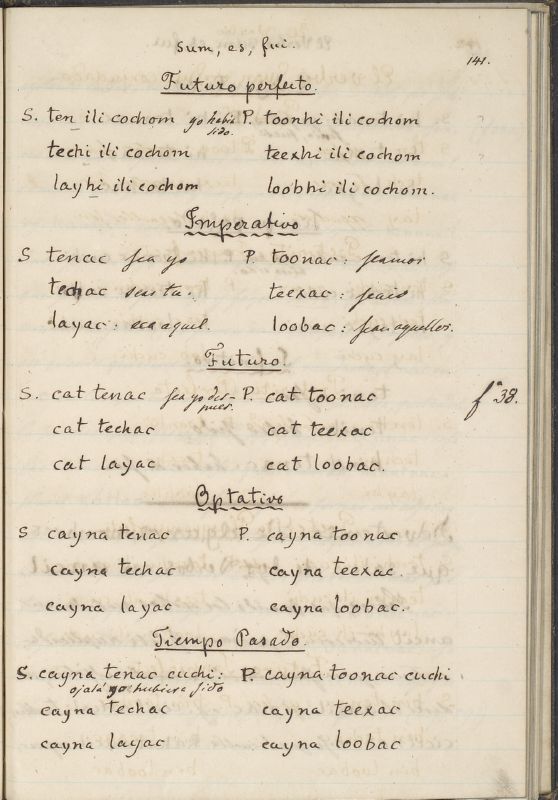 sum, es, fui.
141.
Futuro perfecto.
S. ten ili cochom yo habré sido. P. toonhi ili cochom
techi ili cochom teexhi ili cochom
layhi ili cochom loobhi ili cochom.
Imperativo
S tenac sea yo P. toonac: seamos
techac seas tu. teexac: seais
layac: sea aquel. loobac: sean aquellos.
Futuro.
S. cat tenac sea yo des-pues. P. cat toonac fº 38.
cat techac cat teexac
cat layac cat loobac.
Optativo
S cayna tenac P. cayna toonac
cayna techac cayna teexac.
cayna layac cayna loobac.
Tiempo Pasado.
S. cayna tenac cuchi: P. cayna toonac cuchi
ojalá yo hubiera sido
cayna techac cayna teexac
cayna layac cayna loobac